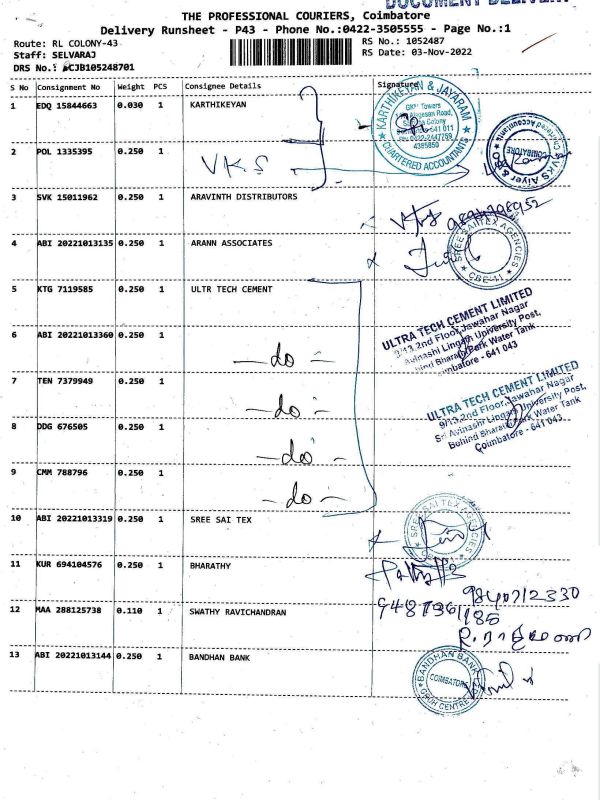 DOCUMENT DELIVERY
THE PROFESSIONAL COURIERS, Coimbatore
Delivery Runsheet - P43 - Phone No.:0422-3505555 - Page No.:1
Route: RL COLONY-43
RS No.: 1052487
Staff: SELVARAJ
RS Date: 03-Nov-2022
DRS No.: CJB105248701
S No Consignment No Weight PCS Consignee Details Signature
1 EDQ 15844663 0.030 1 KARTHIKEYAN
KARTHIKEYAN & JAYARAM
CHARTERED ACCOUNTANTS
2 POL 1335395 0.250 1
VKS
VKS Aiyer &
Chartered Accountants
COIMBATORE
3 SVK 15011962 0.250 1 ARAVINTH DISTRIBUTORS
4 ABI 20221013135 0.250 1 ARANN ASSOCIATES
SREE SAI TEX AGENCIES
CBE-11
5 KTG 7119585 0.250 1 ULTR TECH CEMENT
ULTRA TECH CEMENT LIMITED
9/13,2nd Floor,Jawahar Nagar
Avinashi Lingam University Post,
Behind Bharathi Park Water Tank
Coimbatore - 641 043
6 ABI 20221013360 0.250 1
-do-
7 TEN 7379949 0.250 1
-do-
ULTRA TECH CEMENT LIMITED
9/13,2nd Floor,Jawahar Nagar
Sri Avinashi Lingam University Post,
Behind Bharathi Park Water Tank
Coimbatore - 641 043.
8 DDG 676505 0.250 1
-do-
9 CMM 788796 0.250 1
-do-
10 ABI 20221013319 0.250 1 SREE SAI TEX
SREE SAI TEX AGENCIES
11 KUR 694104576 0.250 1 BHARATHY
12 MAA 288125738 0.110 1 SWATHY RAVICHANDRAN
13 ABI 20221013144 0.250 1 BANDHAN BANK
BANDHAN BANK
COIMBATORE